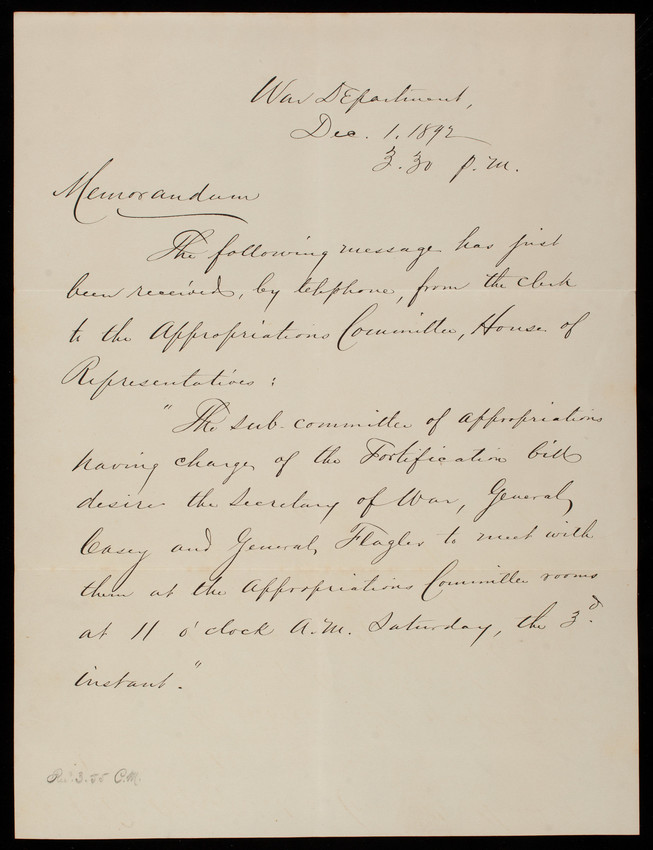 War Department,
Dec. 1, 1892
3.30 P.M.
Memorandum
The following message has just
been received, by telephone, from the clerk
to the Appropriations Committee, House of
Representatives:
"The sub-committee of appropriations
having charge of the Fortification bill
desire the Secretary of War, General
Casey and General Flagler to meet with
them at the Appropriations Committee rooms
at 11 o'clock A.M. Saturday, the 3d.
instant."
3.55 P.M.